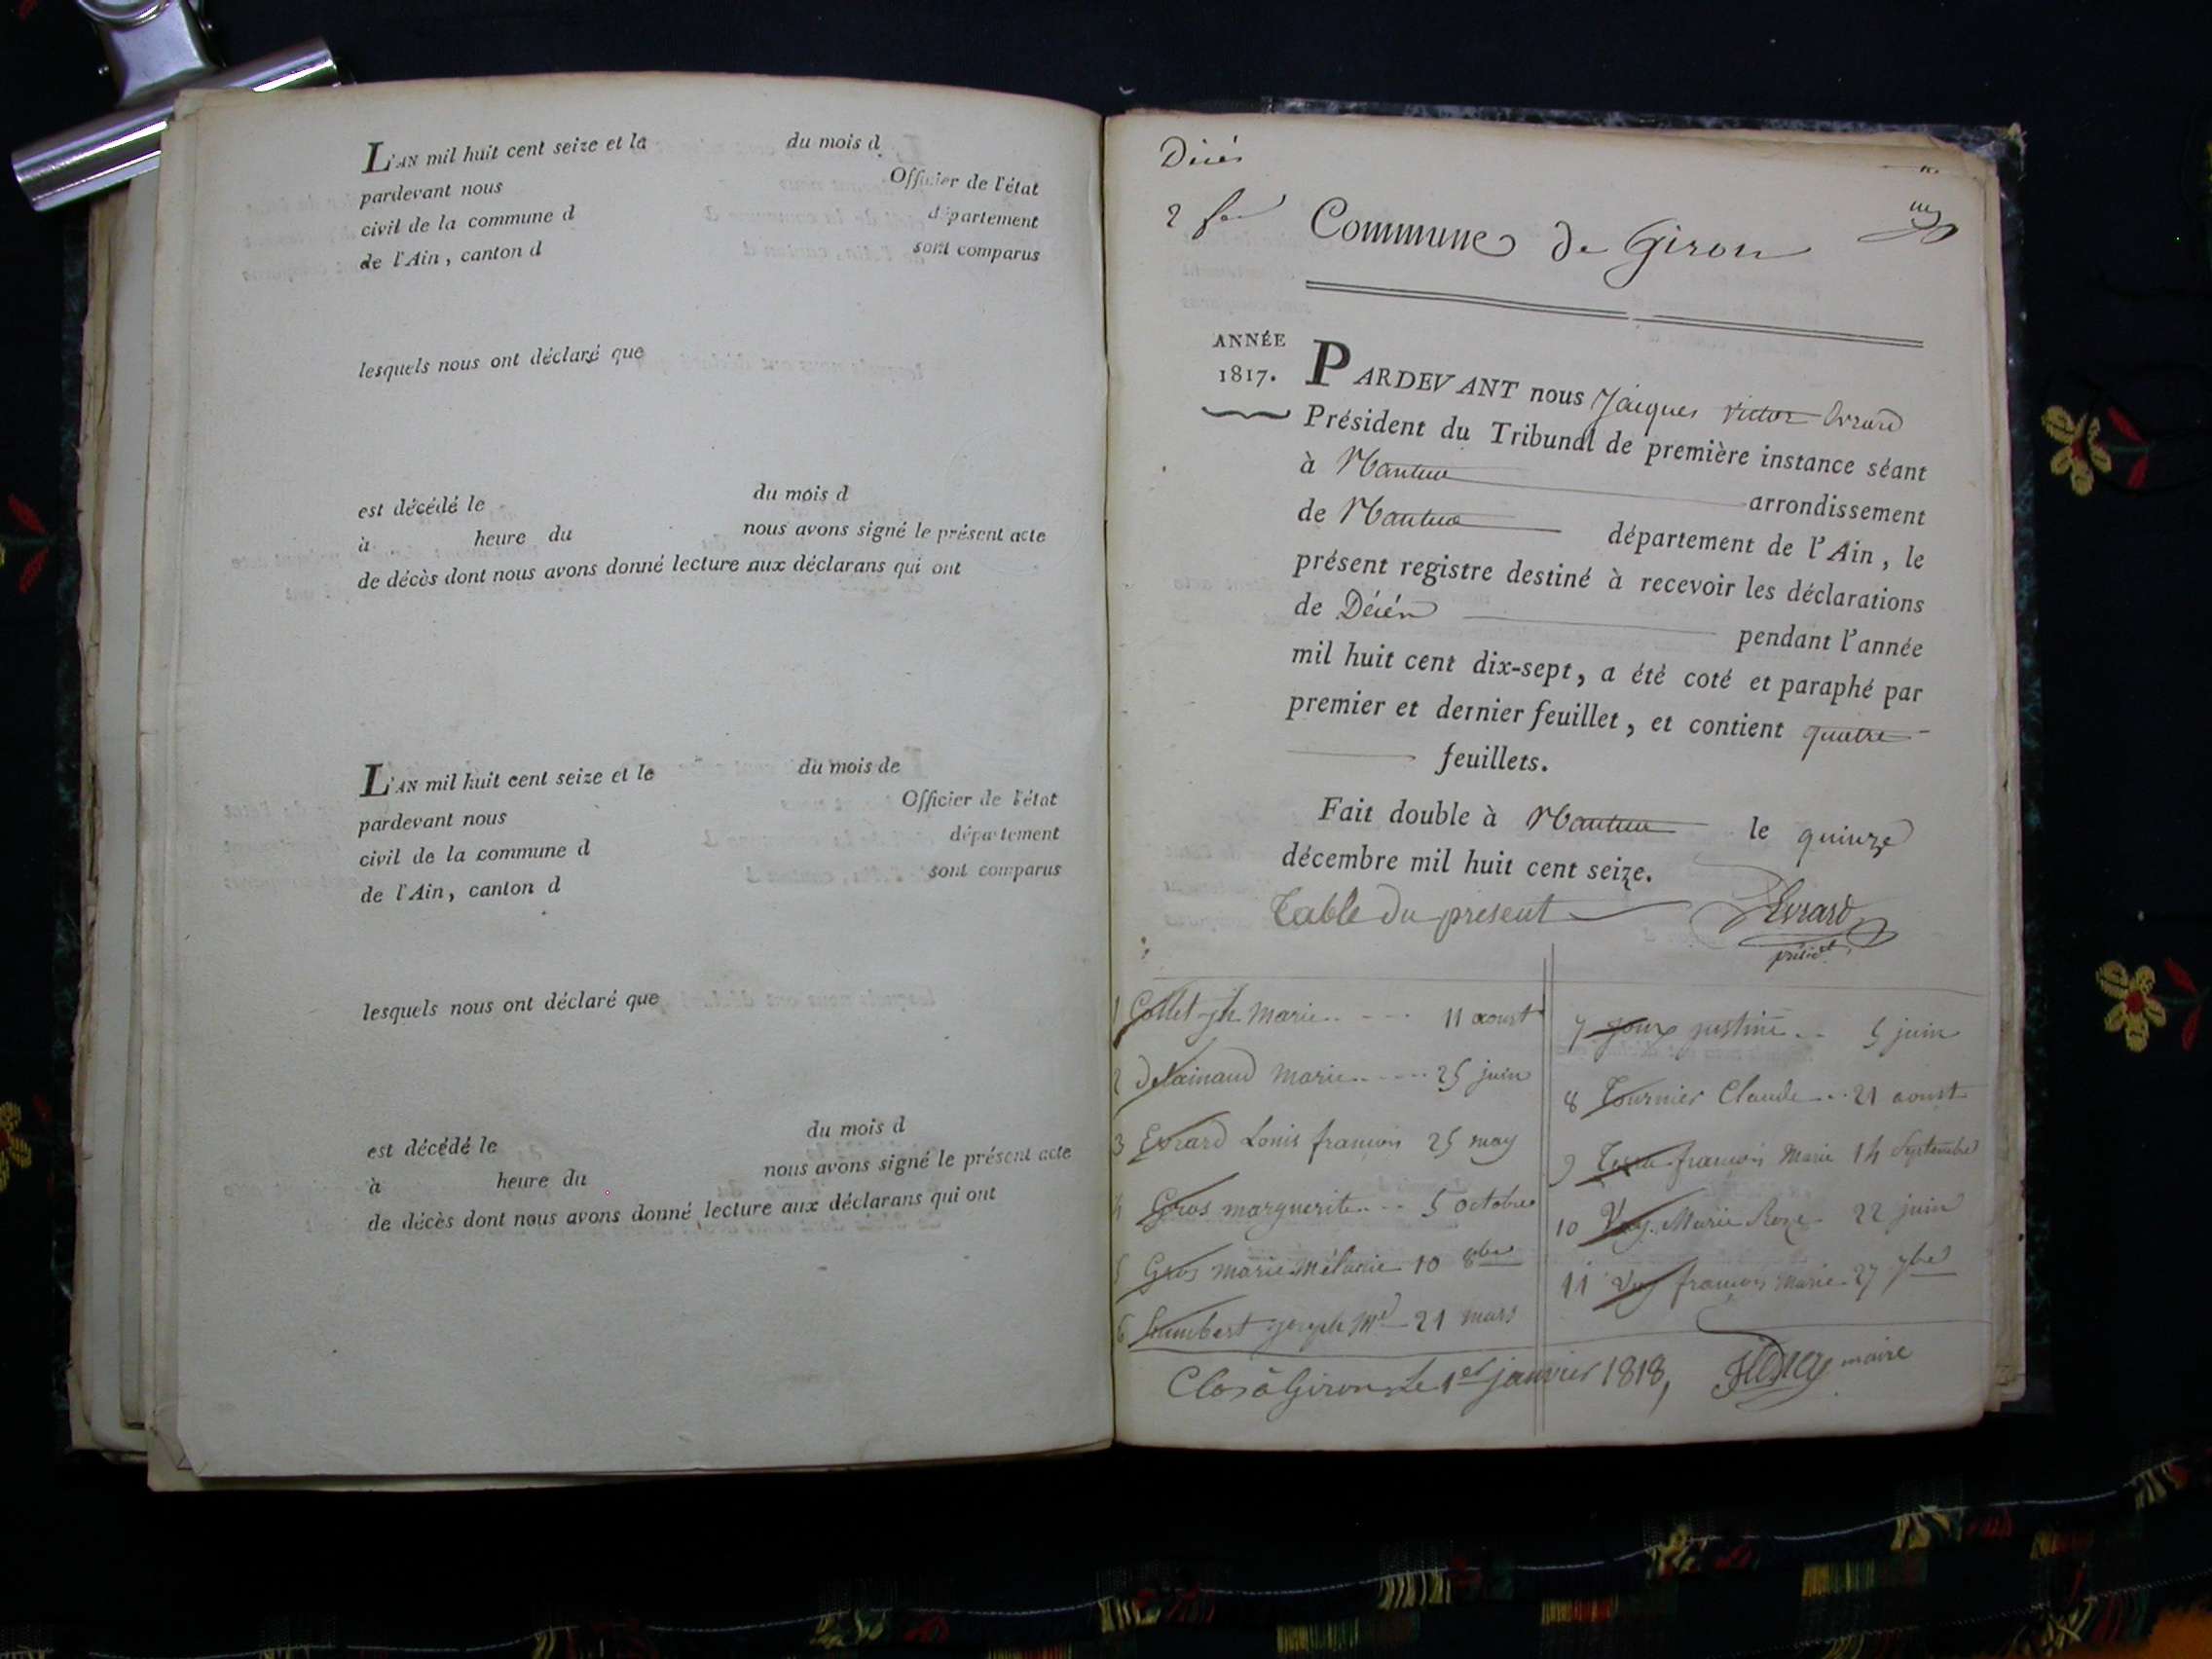 L'AN mil huit cent seize et le du mois d
pardevant nous Officier de l'état
civil de la commune d département
de l'Ain, canton d sont comparus
lesquels nous ont déclaré que
est décédé le du mois d
à heure du nous avons signé le présent acte
de décès dont nous avons donné lecture aux déclarans qui ont
L'AN mil huit cent seize et le du mois de
pardevant nous Officier de l'état
civil de la commune d département
de l'Ain, canton d sont comparus
lesquels nous ont déclaré que
est décédé le du mois d
à heure du nous avons signé le présent acte
de décès dont nous avons donné lecture aux déclarans qui ont
Décès
Commune de Giron
ANNÉE
1817.
PARDEVANT nous Jacques Victor Evrard
Président du Tribunal de première instance séant
à Nantua arrondissement
de Nantua département de l'Ain, le
présent registre destiné à recevoir les déclarations
de Décès pendant l'année
mil huit cent dix-sept, a été coté et paraphé par
premier et dernier feuillet, et contient quatre
feuillets.
Fait double à Nantua le quinze
décembre mil huit cent seize.
Table du present
Evrard
présidt
1 Collet jh Marie 11 aoust
2 Delainaud Marie 25 juin
3 Evrard Louis françois 25 may
4 Gros marguerite 5 octobre
5 Gros marie Mélanie 10 8bre
6 humbert joseph Mie 21 mars
7 joux justine 5 juin
8 Tournier Claude 21 aoust
9 françois Marie 14 Septembre
10 Vuy Marie Roze 22 juin
11 Vuy françois Marie 27 7bre
Clos à Giron Le 1er janvier 1818,
maire